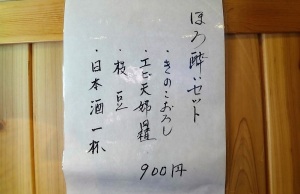 ほろ酔いセット
・きのこおろし
・エビ天婦羅
・枝豆
・日本酒一杯
900円